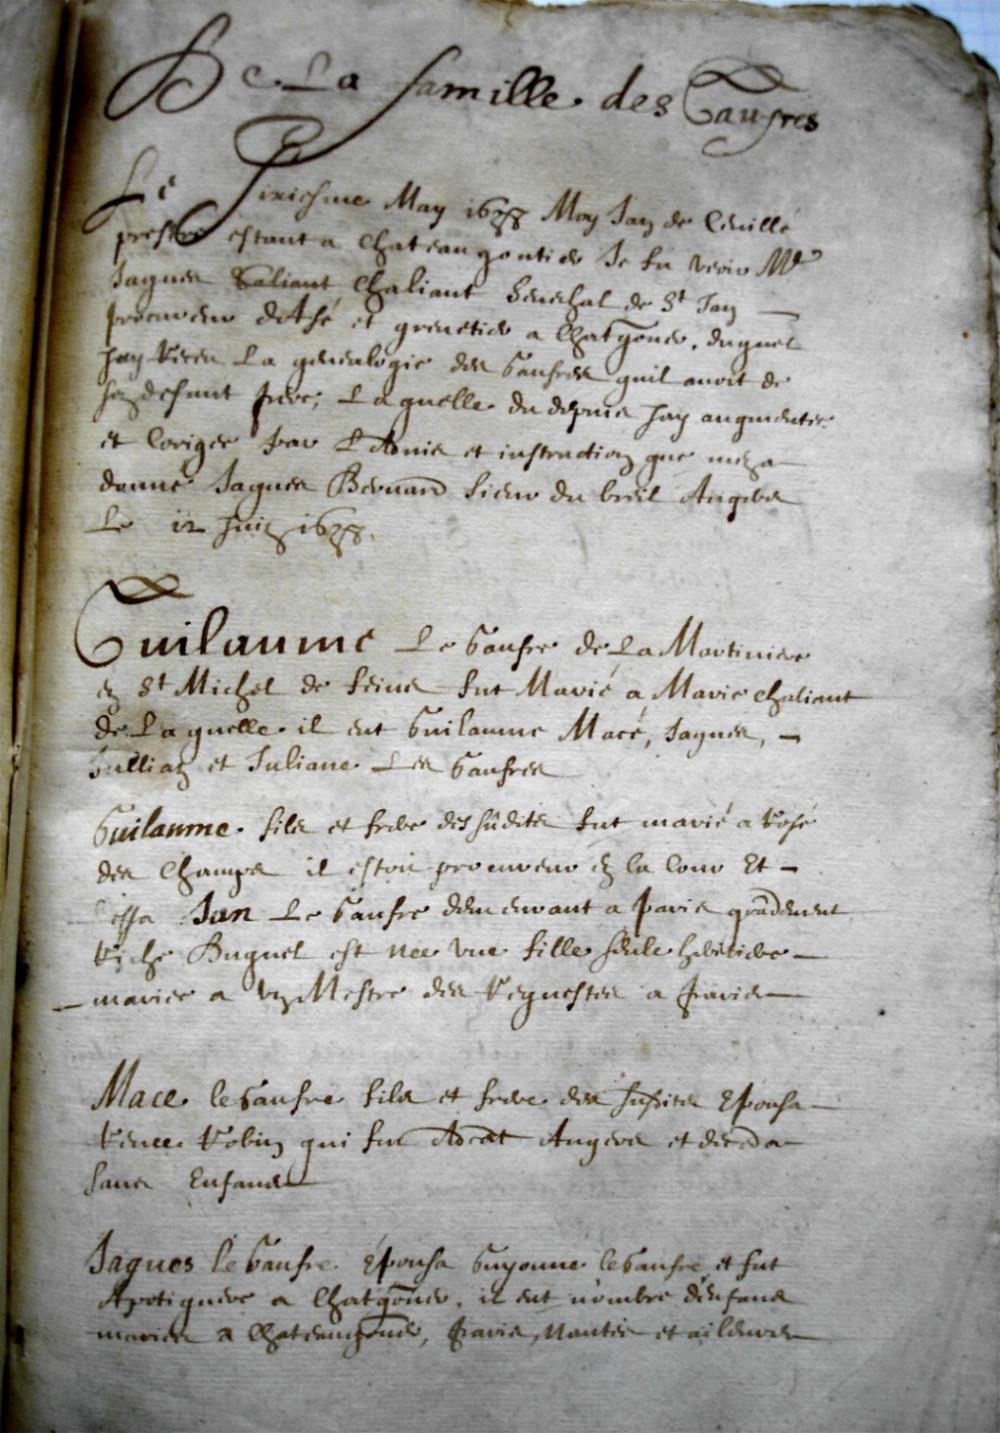 De La famille des Gaufres
Le Sixiesme May 1678 Moy Jan de Cevillé
prestre estant a Chateaugontier Je fu veoir Mr
Jaques Chaliant Senechal de St Jan
procureur dAthé et grenetier a Chatgontier, duquel
Jay tirée La genealogie des Gaufres quil avoit de
son defunt frere; Laquelle du depuis Jay augmentée
et Corigée par LAvis et instruction que men a
donné Jaques Bernard Sieur du breil Angers
Le 12 Juin 1678.
Guilaume Le Gaufre de La Martiniere
en St Michel de feins fut Marié a Marie Chaliant
de Laquelle il eut Guilaume Macé, Jaques,
Jullian et Juliane Les Gaufres
Guilaume fils et frere des sudits fut marié a Rose
des Champs il estoit procureur en la Cour Et
lessa Jan Le Gaufre demeurant a paris grandement
Riche Duquel est née une fille seule heritiere
mariée a un Mestre des Requestes a paris
Mace le Gaufre fils et frere des susdits Epousa
Renee Robin qui fut Avocat Angers et deceda
sans Enfans
Jaques le Gaufre Épousa Guyonne le Gaufre et fut
Apotiquere a Chatgontier, il eut nombre denfans
mariés a Chateaugontier, paris, Nantes et ailleurs